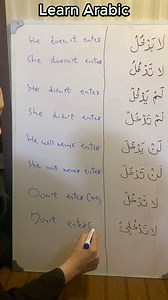 Learn Arabic
He doesn't enter لَا يَدْخُلُ
She doesn't enter لَا تَدْخُلُ
He didn't enter لَمْ يَدْخُلْ
She didn't enter لَمْ تَدْخُلْ
He will never enter لَنْ يَدْخُلَ
She will never enter لَنْ تَدْخُلَ
Don't enter (m) لَا تَدْخُلْ
Don't enter( لَا تَدْخُلِيْ